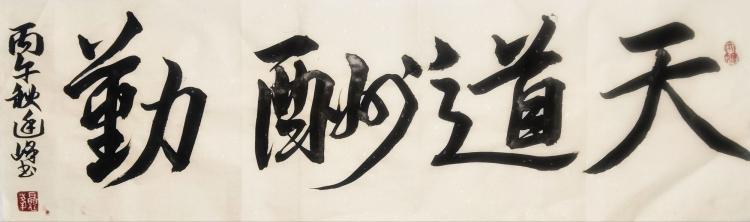 天道酬勤
丙午秋逢峰书